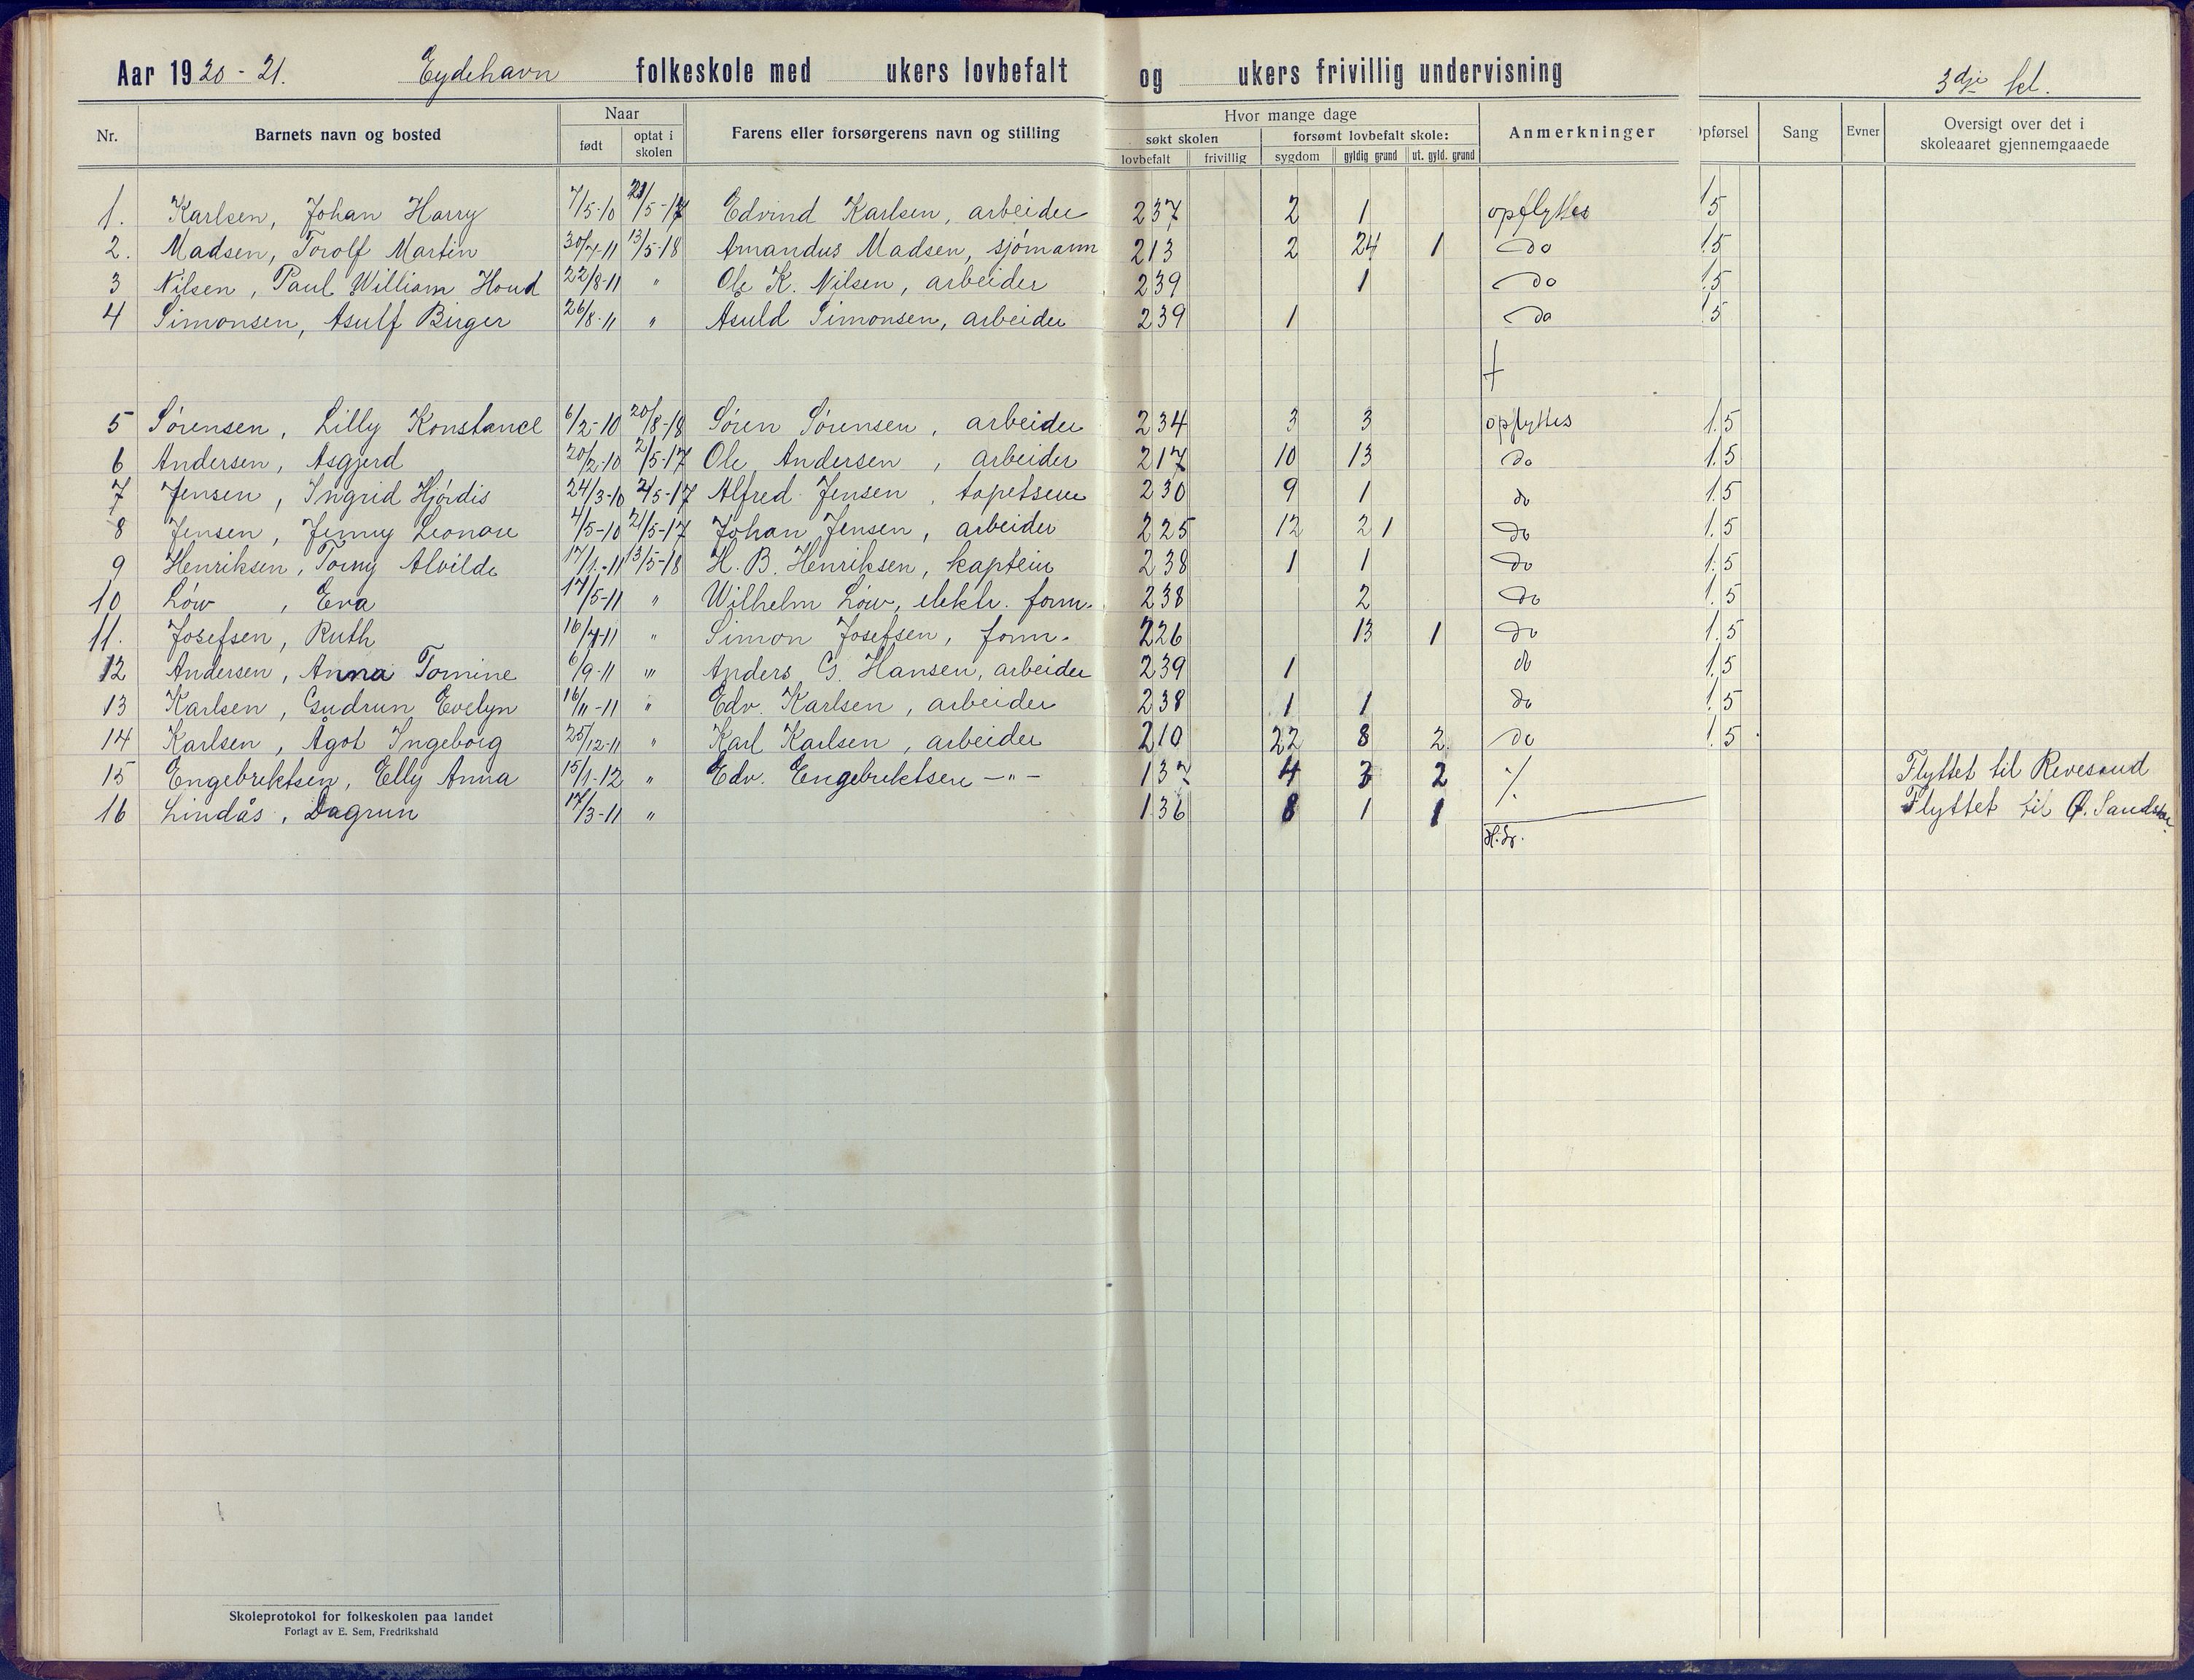 Aar 1920-21. Eydehavn folkeskole med ukers lovbefalt og ukers frivillig undervisning 3dje kl.
Nr. Barnets navn og bosted Naar født optat i skolen Farens eller forsørgerens navn og stilling Hvor mange dage søkt skolen lovbefalt frivillig forsømt lovbefalt skole: sygdom gyldig grund ut. gyld. grund Anmerkninger Opførsel Sang Evner Oversigt over det i skoleaaret gjennemgaaede
1. Karlsen, Johan Harry 7/5-10 21/5-17 Edvind Karlsen, arbeider 237 2 1 opflyttes 1.5
2. Madsen, Torolf Martin 30/7-11 13/5-18 Amandus Madsen, sjømann 213 2 24 1 do 1.5
3 Nilsen, Paul William Houd 22/8-11 " Ole K. Nilsen, arbeider 239 1 do 1.5
4 Simonsen, Asulf Birger 26/8-11 " Asuld Simonsen, arbeider 239 1 do 1.5
5 Sørensen, Lilly Konstance 6/2-10 20/8-18 Søren Sørensen, arbeider 234 3 3 opflyttes 1.5
6 Andersen, Asgjerd 20/2-10 21/5-17 Ole Andersen, arbeider 217 10 13 do 1.5
7 Jensen, Ingrid Hjørdis 24/3-10 21/5-17 Alfred Jensen, tapetserer 230 9 1 do 1.5
8 Jensen, Jenny Leonore 4/5-10 21/5-17 Johan Jensen, arbeider 225 12 2 1 do 1.5
9 Henriksen, Torny Alvilde 17/1-11 13/5-18 H. B. Henriksen, kaptein 238 1 1 do 1.5
10 Løw, Eva 17/5-11 " Wilhelm Løw, elektr. form. 238 2 do 1.5
11. Josefsen, Ruth 16/7-11 " Simon Josefsen, form. 226 13 1 do 1.5
12 Andersen, Anna Tomine 6/9-11 " Anders G. Hansen, arbeider 239 1 do 1.5
13 Karlsen, Gudrun Evelyn 16/11-11 " Edv. Karlsen, arbeider 238 1 1 do 1.5
14 Karlsen, Ågot Ingeborg 25/12-11 " Karl Karlsen, arbeider 210 22 8 2 do 1.5
15 Engebrektsen, Elly Anna 15/1-12 " Edv. Engebrektsen -"- 137 4 3 2 ./. Flyttet til Revesand
16 Lindås, Dagrun 17/3-11 " 136 8 1 1 Flyttet til Ø. Sandøen
Skoleprotokol for folkeskolen paa landet
Forlagt av E. Sem, Fredrikshald